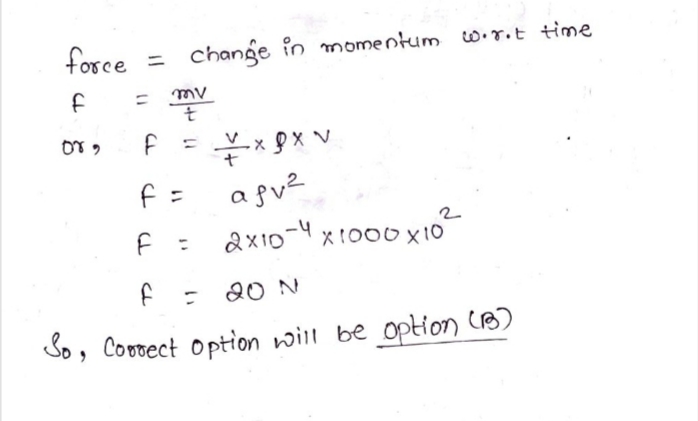 force = change in momentum w.r.t time
f = mv/t
or, f = v/t × ρ × v
f = aρv²
f = 2×10⁻⁴ ×1000 ×10²
f = 20 N
So, Correct option will be option (B)